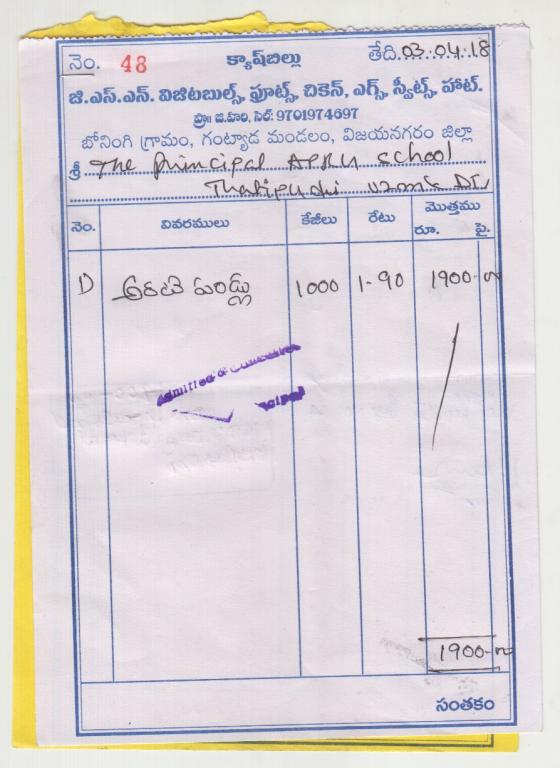 నెం. 48 క్యాష్‌బిల్లు తేది.03.04.18
జి.ఎస్.ఎన్. విజిటబుల్స్, ఫ్రూట్స్, చికెన్, ఎగ్స్, స్వీట్స్, హాట్.
ప్రొ॥ జి.హరి, సెల్: 9701974697
బోనింగి గ్రామం, గంట్యాడ మండలం, విజయనగరం జిల్లా
శ్రీ The Principal APRU School
Thatipudi
నెం. వివరములు కేజీలు రేటు మొత్తము
రూ. పై.
1) అరటి పండ్లు 1000 1-90 1900-00
Admitted
1900-00
సంతకం